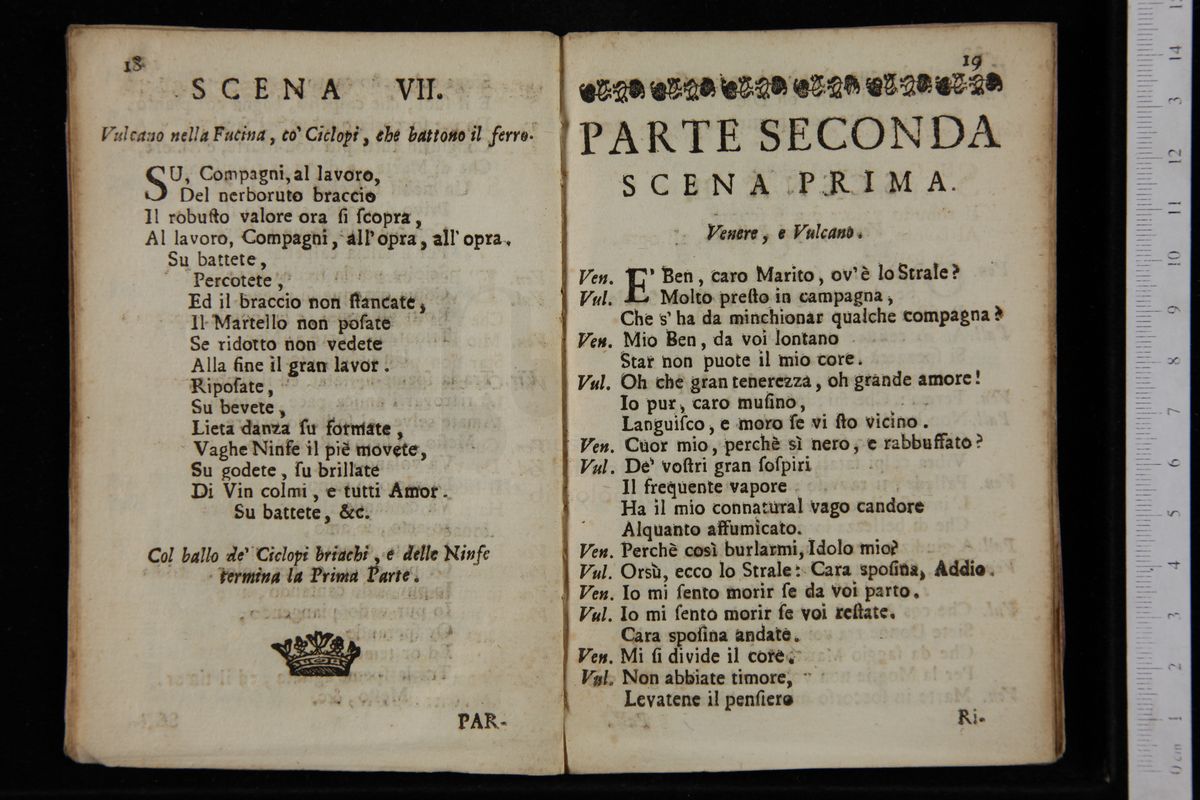 18
SCENA VII.
Vulcano nella Fucina, co' Ciclopi, che battono il ferro.
SU, Compagni, al lavoro,
Del nerboruto braccio
Il robuſto valore ora ſi ſcopra,
Al lavoro, Compagni, all'opra, all'opra.
Su battete,
Percotete,
Ed il braccio non ſtancate,
Il Martello non poſate
Se ridotto non vedete
Alla fine il gran lavor.
Ripoſate,
Su bevete,
Lieta danza ſu formate,
Vaghe Ninfe il piè movete,
Su godete, ſu brillate
Di Vin colmi, e tutti Amor.
Su battete, &c.
Col ballo de' Ciclopi briachi, e delle Ninfe
termina la Prima Parte.
PAR-
19
PARTE SECONDA
SCENA PRIMA.
Venere, e Vulcano.
Ven. E' Ben, caro Marito, ov'è lo Strale?
Vul. Molto preſto in campagna,
Che s'ha da minchionar qualche compagna?
Ven. Mio Ben, da voi lontano
Star non puote il mio core.
Vul. Oh che gran tenerezza, oh grande amore!
Io pur, caro muſino,
Languiſco, e moro ſe vi ſto vicino.
Ven. Cuor mio, perchè sì nero, e rabbuffato?
Vul. De' voſtri gran ſoſpiri
Il frequente vapore
Ha il mio connatural vago candore
Alquanto affumicato.
Ven. Perchè così burlarmi, Idolo mio?
Vul. Orsù, ecco lo Strale: Cara spoſina, Addio.
Ven. Io mi ſento morir ſe da voi parto.
Vul. Io mi ſento morir ſe voi reſtate.
Cara spoſina andate.
Ven. Mi ſi divide il core.
Vul. Non abbiate timore,
Levatene il penſiero
Ri-
0 cm 1 2 3 4 5 6 7 8 9 10 11 12 13 14